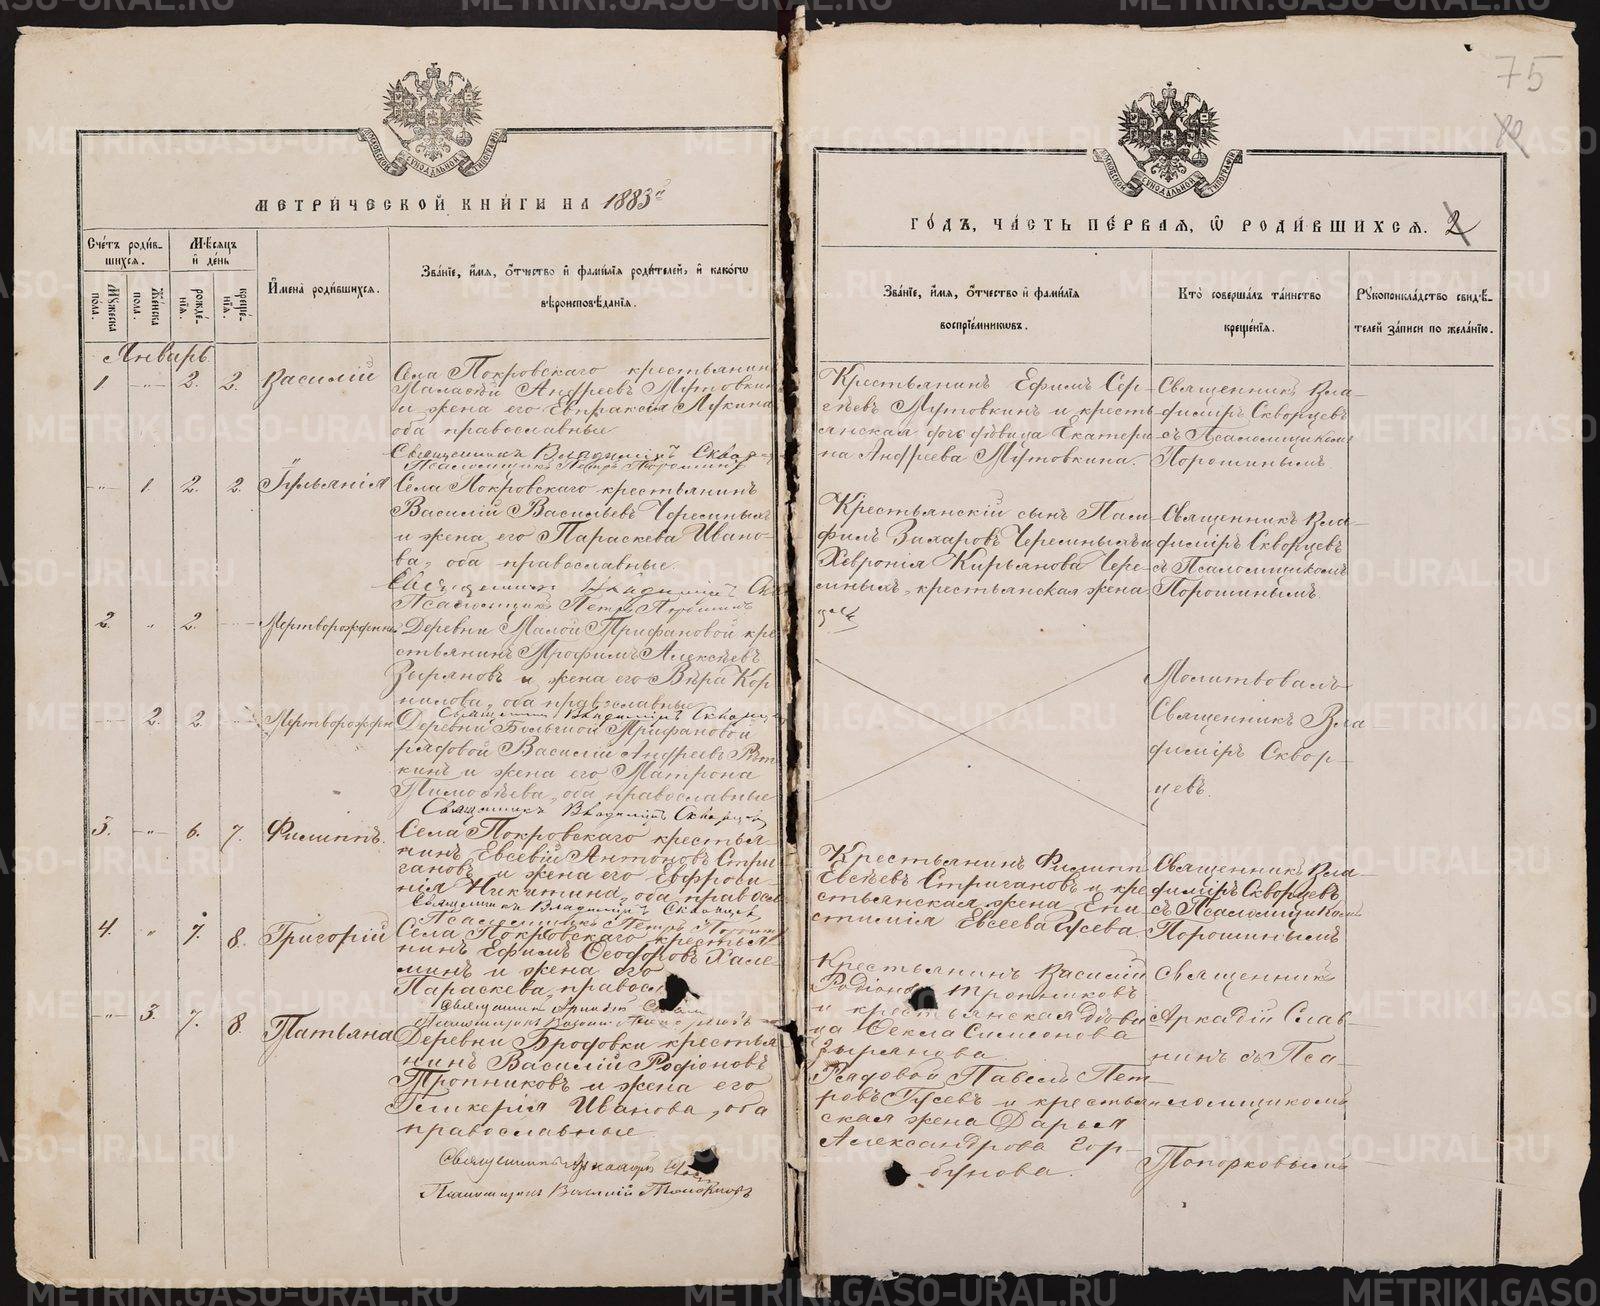 75
МЕТРИЧЕСКОЙ КНИГИ НА 1883 й
ГОДЪ, ЧАСТЬ ПЕРВАЯ, Ѽ РОДИВШИХСЯ. 2
Счетъ родив-
шихся.
Мѣсяцъ
и день
Имена родившихся.
Званіе, имя, отчество и фамилія родителей, и какогѡ
вѣроисповѣданія.
Мужеска
пола.
Женска
пола.
рожде-
нія.
креще-
нія.
Званіе, имя, отчество и фамилія
воспріемникѡвъ.
Кто совершалъ таинство
крещенія.
Рукоприкладство свидѣ-
телей записи по желанію.
Январь
1 „ 2. 2. Василій
Села Покровскаго крестьянин
Андреевъ Мутовкин
и жена его Евпраксія Лукина
оба православные
Священникъ Владимій Сквор
Псаломщикъ Петръ Порошинъ
Крестьянинъ Ефимъ Сер-
гѣевъ Мутовкинъ и кресть-
янская дочь дѣвица Екатери-
на Андреева Мутовкина.
Священникъ Вла-
димірь Скворцевъ
съ Псаломщикомъ
Порошинымъ
„ 1. 2. 2. Іульянія
Села Покровскаго крестьянинъ
Василій Васильевъ Череминыхъ
и жена его Параскева Ивано-
ва, оба православные.
Священникъ Владимій Скв
Псаломщикъ Петръ Порошинъ
Крестьянскій сынъ Пам-
филъ Захаровъ Череминыхъ и
Хеврония Кирьянова Чере-
миныхъ, крестьянская жена
Священникъ Вла-
димірь Скворцевъ
съ Псаломщикомъ
Порошинымъ
2. „ 2. Мертворожден
Деревни Малой Трифановой кре
стьянинъ Трофимъ Алексѣевъ
Зыряновъ и жена его Вѣра Кор
нилова, оба православные
Священникъ Владиміръ Скворц
Молитвовалъ
Священникъ Вла
димірь Сквор-
цевъ.
2. 2. Мертворожден
Деревни Большой Трифановой
рядовой Василій Андреевъ
кинъ и жена его Матрона
Тимоѳеева, оба православные
Священникъ Владиміръ Скворцев
3. „ 6. 7. Филиппъ.
Села Покровскаго крестья
нинъ Евсевій Антоновъ Стри
гановъ и жена его Евфроси
нія Никитина, оба правосл
Священникъ Владимій Скворцев
Псаломщикъ Петръ Порошин
Крестьянинъ Филипп
Евсѣевъ Стригановъ и кре
стьянская жена Епи
стимія Евсеева Гусева
Священникъ Вла-
димірь Скворцевъ
съ Псаломщикомъ
Порошинымъ
4. „ 7. 8. Григорій
Села Покровскаго крестья
нинъ Ефимъ Ѳеодоровъ Халя-
минъ и жена его
Параскева, правосл
Священникъ Аркадій Славн
Псаломщикъ Василий Топорковъ
Крестьянинъ Василій
Родіоновъ Тропниковъ
и крестьянская дѣви
ца Ѳекла Симеонова
Зырянова
Священникъ
Аркадій Слав-
нинъ съ Пса-
ломщикомъ
Топорковымъ
„ 3. 7. 8. Татьяна
Деревни Бродовки крестья
нинъ Василій Родіоновъ
Тропниковъ и жена его
Гликерія Иванова, оба
православные
Священникъ Аркадій
Псаломщикъ Василій Топорковъ
Рядовой Павелъ Пет-
ровъ Гусевъ и крестьян-
ская жена Дарья
Александрова Гор-
бунова.